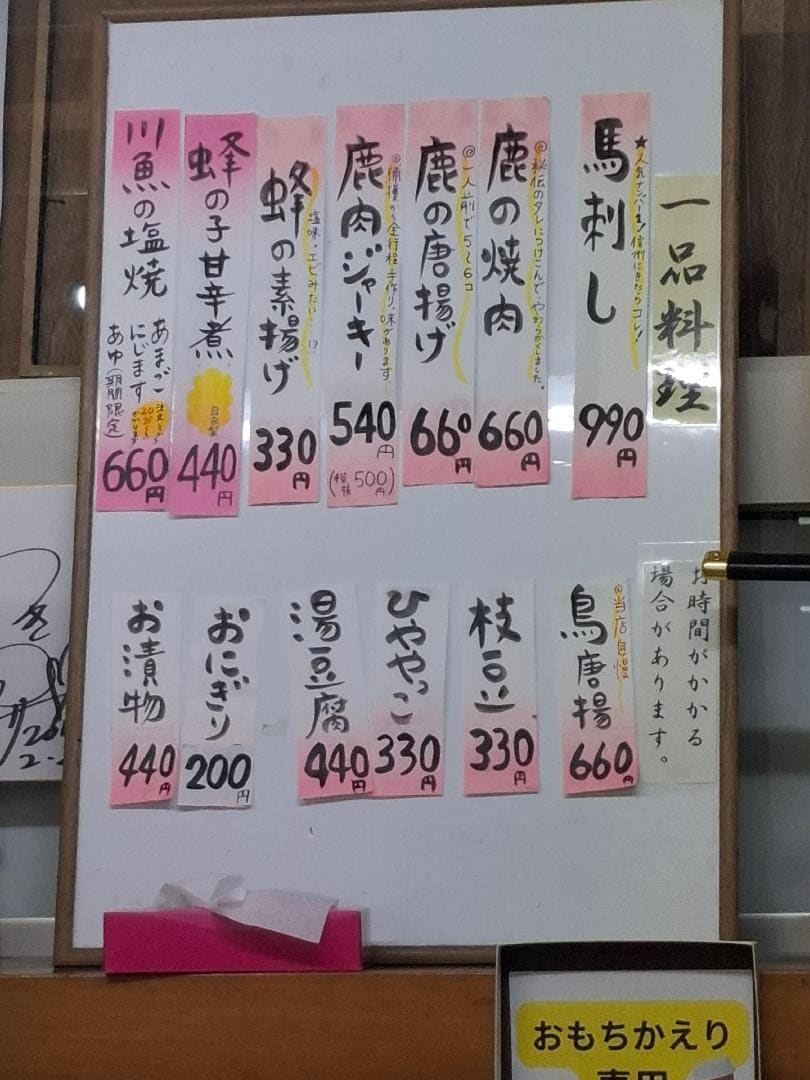 一品料理
馬刺し
★人気ナンバー1!信州にきたらコレ!
990円
鹿の焼肉
◎秘伝のタレにつけこんで・やわらかくしました。
660円
鹿の唐揚げ
◎一人前で5~6コ
660円
鹿肉ジャーキー
◎捕獲から全行程手作り。味があります。
540円
(税抜500円)
蜂の素揚げ
塩味。エビみたい…!?
330円
蜂の子甘辛煮
自家製
440円
川魚の塩焼
あまご
にじます
あゆ(期間限定)
注文から
20分
かかります
660円
お時間がかかる
場合があります。
鳥唐揚
◎当店自慢
660円
枝豆
330円
ひややっこ
330円
湯豆腐
440円
おにぎり
200円
お漬物
440円
おもちかえり
専用